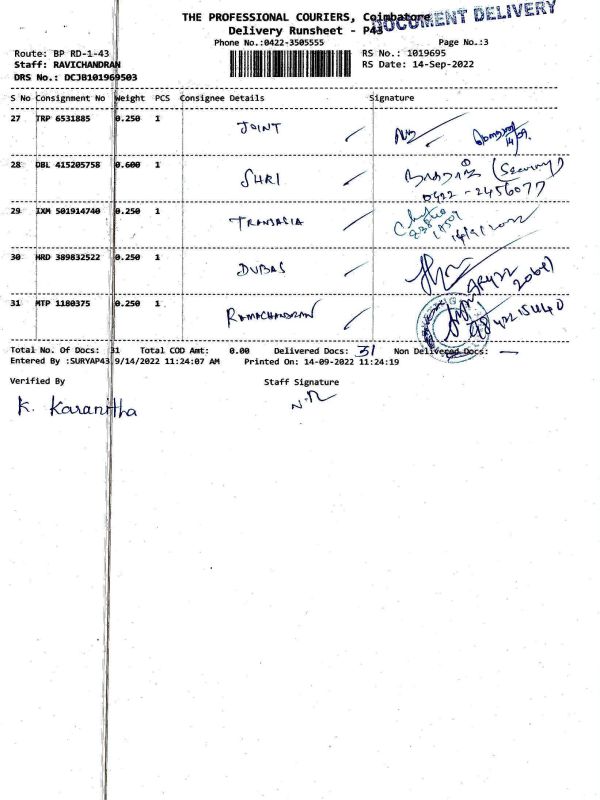 THE PROFESSIONAL COURIERS, Coimbatore
DOCUMENT DELIVERY
Delivery Runsheet - P43
Phone No.:0422-3505555 Page No.:3
Route: BP RD-1-43 RS No.: 1019695
Staff: RAVICHANDRAN RS Date: 14-Sep-2022
DRS No.: DCJB101969503
S No Consignment No Weight PCS Consignee Details Signature
27 TRP 6531885 0.250 1 JOINT 14/09
28 DBL 415205758 0.600 1 SHRI (Security)
0422-2456077
29 IXM 501914740 0.250 1 TRANSASIA
14/9/2022
30 HRD 389832522 0.250 1 DUBAS
31 MTP 1180375 0.250 1 RAMACHANDRAN
Total No. Of Docs: 31 Total COD Amt: 0.00 Delivered Docs: 31 Non Delivered Docs: —
Entered By :SURYAP43 9/14/2022 11:24:07 AM Printed On: 14-09-2022 11:24:19
Verified By Staff Signature
K. Karanitha